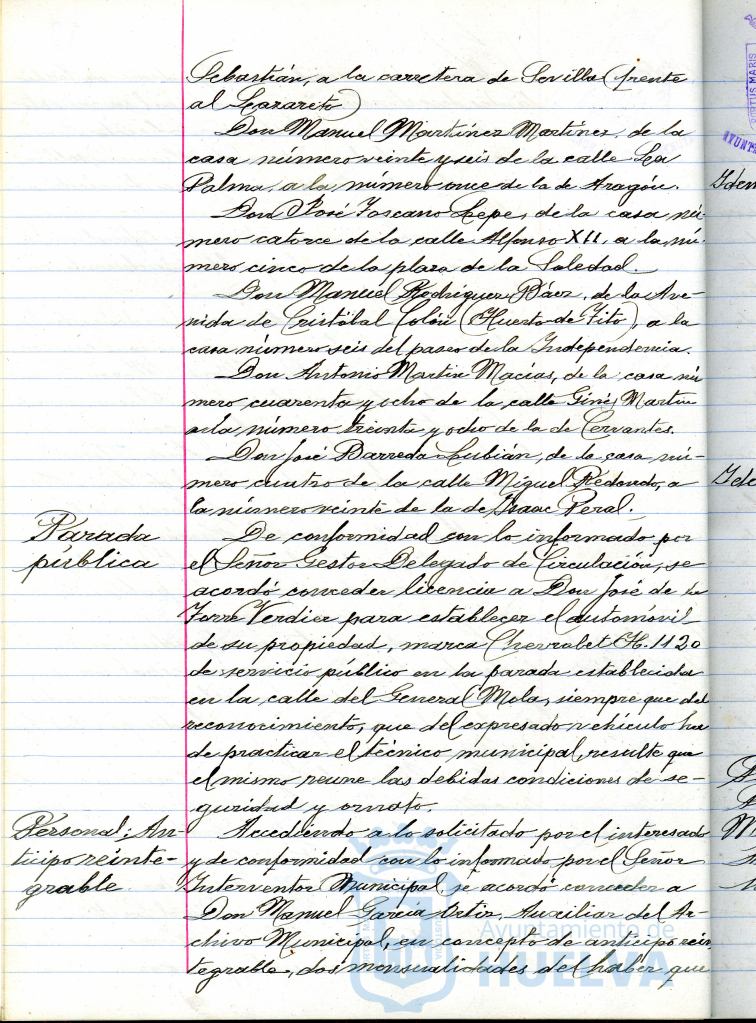 Sebastián, a la carretera de Sevilla (frente
al Lazareto)
Don Manuel Martínez Martínez, de la
casa número veinte y seis de la calle La
Palma, a la número once de la de Aragón.
Don José Toscano Lepe, de la casa nú-
mero catorce de la calle Alfonso XII, a la nú-
mero cinco de la plaza de la Soledad.
Don Manuel Rodríguez Báez, de la Ave-
nida de Cristóbal Colón (Huerto de Tito), a la
casa número seis del paseo de la Independencia.
Don Antonio Martin Macías, de la casa nú
mero cuarenta y ocho de la calle Ginés Martin
a la número treinta y ocho de la de Cervantes.
Don José Barreda Lubián, de la casa nú-
mero cuatro de la calle Miguel Redondo, a
la número veinte de la de Isaac Peral.
Parada
pública
De conformidad con lo informado por
el Señor Gestor Delegado de Circulación, se
acordó conceder licencia a Don José de la
Torre Verdier para establecer el automóvil
de su propiedad, marca Chevrolet H. 1120
de servicio público en la parada establecida
en la calle del General Mola, siempre que del
reconocimiento, que del expresado vehículo ha
de practicar el técnico municipal, resulte que
el mismo reune las debidas condiciones de se-
guridad y ornato.
Personal: An-
ticipo reinte-
grable
Accediendo a lo solicitado por el interesado
y de conformidad con lo informado por el Señor
Interventor Municipal, se acordó conceder a
Don Manuel García Ortiz, Auxiliar del Ar-
chivo Municipal, en concepto de anticipo rein
tegrable, dos mensualidades del haber que
Ayuntamiento de
HUELVA